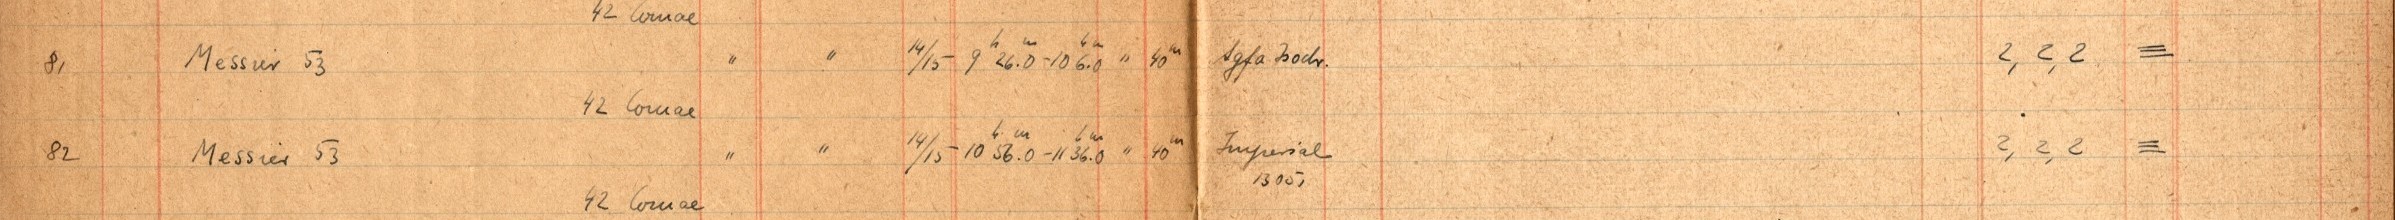 42 Comae
81 Messier 53 " " 14/15 9h 26.0m - 10h 6.0m " 40m Agfa Isochr. 2, 2, 2 ≡
42 Comae
82 Messier 53 " " 14/15 10h 56.0m - 11h 36.0m " 40m Imperial 2, 2, 2 ≡
1305,
42 Comae